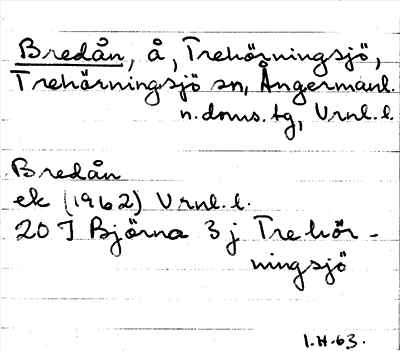 Bredån, å, Trehörningsjö,
Trehörningsjö sn, Ångermanl.
n. doms. tg, Vrnl. l.
Bredån
ek (1962) Vrnl. l.
20 J Björna 3 j Trehör-
ningsjö
I.H.63.